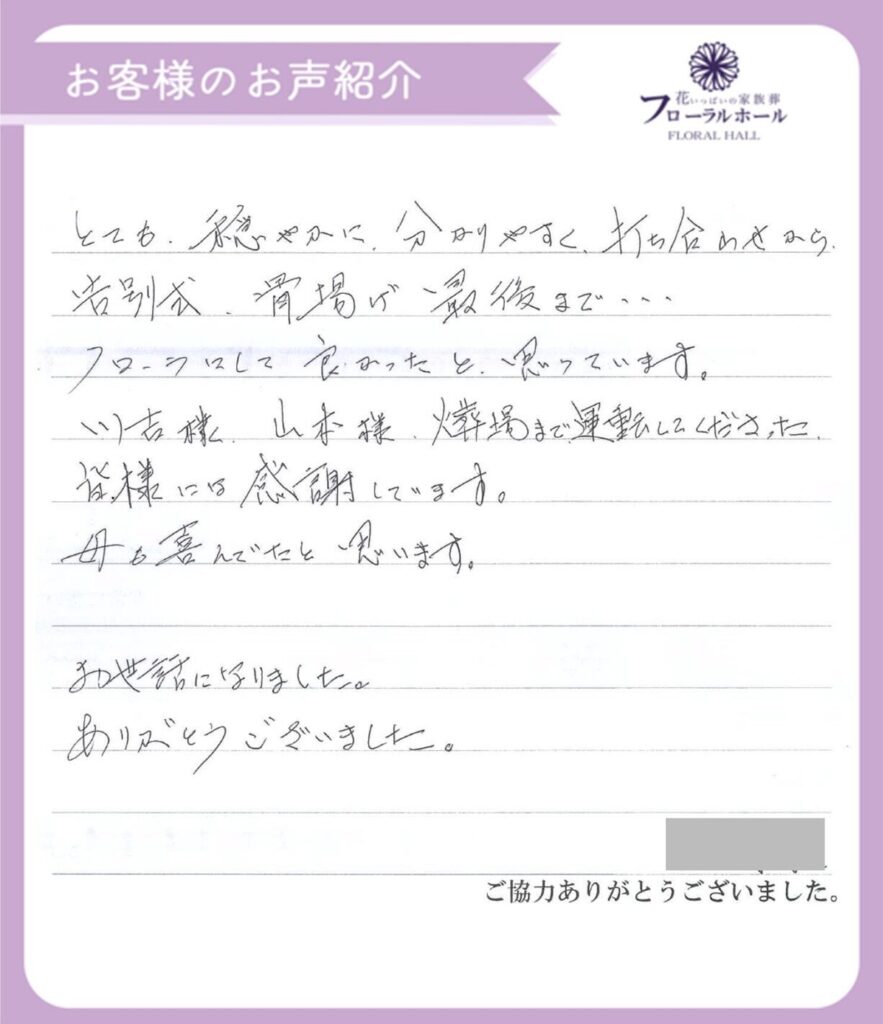 お客様のお声紹介
花いっぱいの家族葬
フローラルホール
FLORAL HALL
とても、穏やかに、分かりやすく、打ち合わせから、
告別式、骨揚げ 最後まで・・・
フローラにして 良かったと、思っています。
川吉様、山本様、火葬場まで運転してくださった、
皆様には感謝しています。
母も喜んでたと思います。
お世話になりました。
ありがとうございました。
ご協力ありがとうございました。